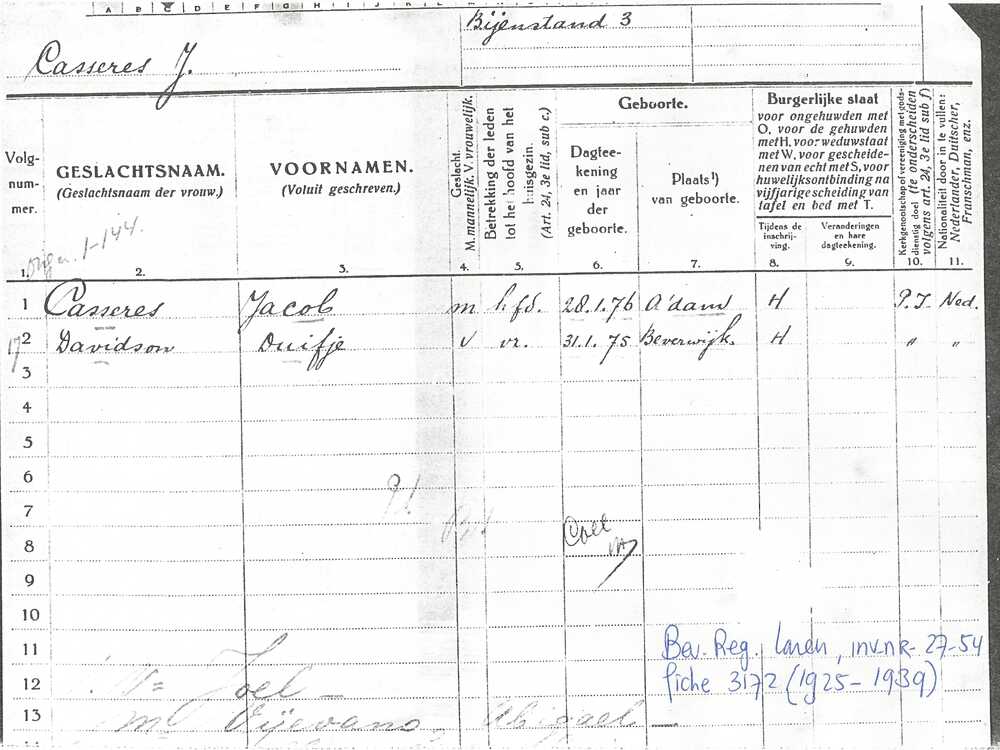 A B C D E F G H I J K L M N O
Bijenstand 3
Casseres J.
Volg-
num-
mer.
GESLACHTSNAAM.
(Geslachtsnaam der vrouw.)
VOORNAMEN.
(Voluit geschreven.)
Geslacht.
M. mannelijk. V. vrouwelijk.
Betrekking der leden
tot het hoofd van het
huisgezin.
(Art. 24, 3e lid, sub c.)
Geboorte.
Dagtee-
kening
en jaar
der
geboorte.
Plaats¹)
van geboorte.
Burgerlijke staat
voor ongehuwden met
O, voor de gehuwden
met H, voor weduwstaat
met W, voor gescheide-
nen van echt met S, voor
huwelijksontbinding na
vijfjarige scheiding van
tafel en bed met T.
Tijdens de
inschrij-
ving.
Veranderingen
en hare
dagteekening.
Kerkgenootschap of vereeniging met gods-
dienstig doel (te onderscheiden
volgens art. 24, 3e lid sub f)
Nationaliteit door in te vullen:
Nederlander, Duitscher,
Franschman, enz.
1-144.
1. 2. 3. 4. 5. 6. 7. 8. 9. 10. 11.
1 Casseres Jacob m h.fd. 28.1.76 A'dam H P.I. Ned.
2 Davidson Duifje v vr. 31.1.75 Beverwijk. H " "
3
4
5
6
7
8
9
10
11
12 Joel
13
Bev. Reg. Laren, inv.nr. 27-54
fiche 3172 (1925-1939)